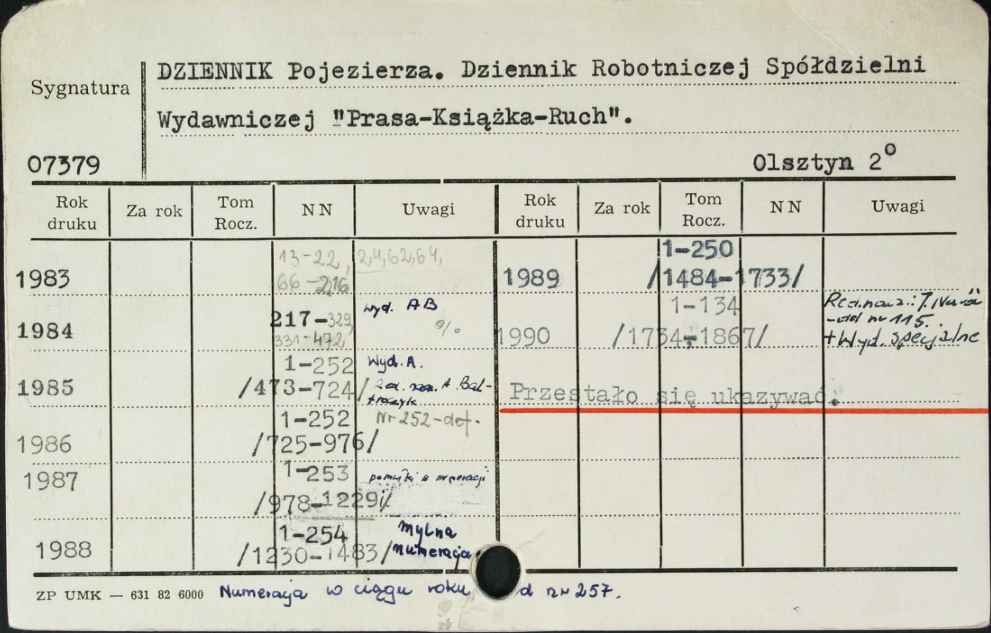 DZIENNIK Pojezierza. Dziennik Robotniczej Spółdzielni
Sygnatura
Wydawniczej "Prasa-Książka-Ruch".
07379
Olsztyn 2°
Rok druku Za rok Tom Rocz. NN Uwagi Rok druku Za rok Tom Rocz. NN Uwagi
1983 13-22, 66-216 2,4,62,64,
1984 217-329, 331-472 wyd. AB %
1985 1-252 /473-724/ Wyd. A.
1986 1-252 /725-976/ Nr 252-def.
1987 1-253 /978-1229/ pomyłki w numeracji
1988 1-254 /1230-1483/ mylna numeracja
1989 1-250 /1484-1733/
1990 1-134 /1734-1867/ od nr 115. +Wyd. specjalne
Przestało się ukazywać.
ZP UMK — 631 82 6000 Numeracja w ciągu roku d nr 257.